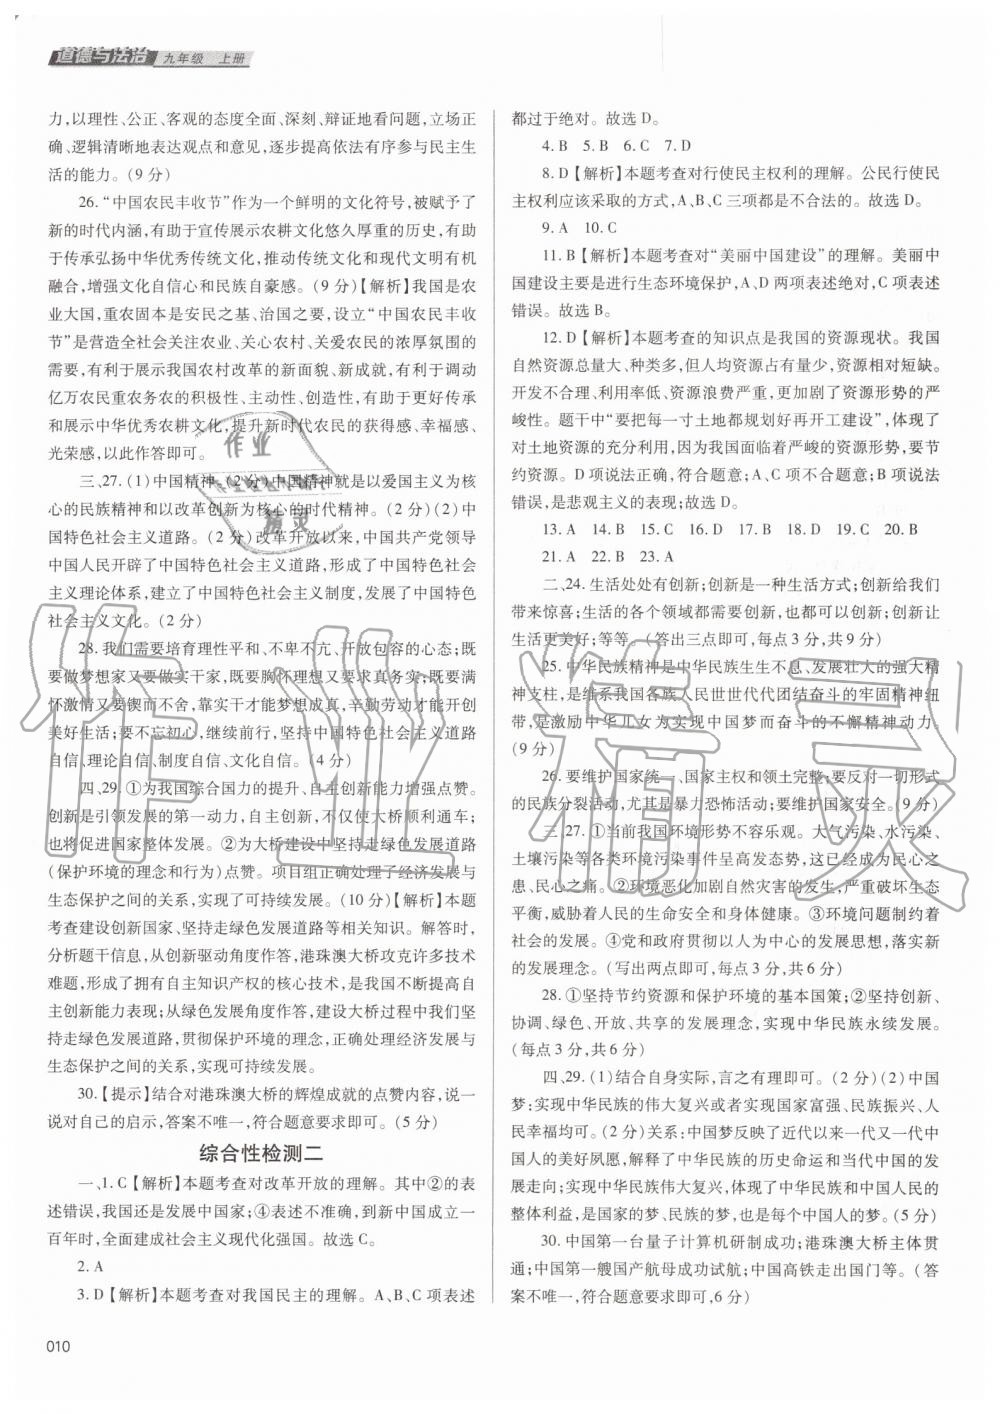 道德与法治 九年级 上册
力,以理性、公正、客观的态度全面、深刻、辩证地看问题,立场正
确、逻辑清晰地表达观点和意见,逐步提高依法有序参与民主生
活的能力。(9 分)
26.“中国农民丰收节”作为一个鲜明的文化符号,被赋予了
新的时代内涵,有助于宣传展示农耕文化悠久厚重的历史,有助
于传承弘扬中华优秀传统文化,推动传统文化和现代文明有机
融合,增强文化自信心和民族自豪感。(9 分)【解析】我国是农
业大国,重农固本是安民之基、治国之要,设立“中国农民丰收
节”是营造全社会关注农业、关心农村、关爱农民的浓厚氛围的
需要,有利于展示我国农村改革的新面貌、新成就,有利于调动
亿万农民重农务农的积极性、主动性、创造性,有助于更好传承
和展示中华优秀农耕文化,提升新时代农民的获得感、幸福感、
光荣感,以此作答即可。
三、27.(1)中国精神。(2 分)中国精神就是以爱国主义为核
心的民族精神和以改革创新为核心的时代精神。(2 分)(2)中
国特色社会主义道路。(2 分)改革开放以来,中国共产党领导
中国人民开辟了中国特色社会主义道路,形成了中国特色社会
主义理论体系,建立了中国特色社会主义制度,发展了中国特色
社会主义文化。(2 分)
28.我们需要培育理性平和、不卑不亢、开放包容的心态;既
要做梦想家又要做实干家,既要胸怀理想又要求真务实;既要满
怀激情又要锲而不舍,靠实干才能梦想成真,辛勤劳动才能开创
美好生活;要不忘初心,继续前行,坚持中国特色社会主义道路
自信、理论自信、制度自信、文化自信。(4 分)
四、29.①为我国综合国力的提升、自主创新能力增强点赞。
创新是引领发展的第一动力,自主创新,不仅使大桥顺利通车;
也将促进国家整体发展。②为大桥建设中坚持走绿色发展道路
(保护环境的理念和行为)点赞。项目组正确处理了经济发展与
生态保护之间的关系,实现了可持续发展。(10 分)【解析】本题
考查建设创新国家、坚持走绿色发展道路等相关知识。解答时,
分析题干信息,从创新驱动角度作答,港珠澳大桥攻克许多技术
难题,形成了拥有自主知识产权的核心技术,是我国不断提升自主
创新能力表现;从绿色发展角度作答,建设大桥过程中,我国坚
持走绿色发展道路,贯彻保护环境的理念,正确处理经济发展与
生态保护之间的关系,实现可持续发展。
30.【提示】结合对港珠澳大桥的辉煌成就的点赞内容,说一
说对自己的启示,答案不唯一,符合题意要求即可。(5 分)
综合性检测二
一、1.C【解析】本题考查对改革开放的理解。其中②的表
述错误,我国还是发展中国家;④表述不准确,到新中国成立一
百年时,全面建成社会主义现代化强国。故选 C。
2. A
3.D【解析】本题考查对我国民主的理解。A、B、C 项表述
都过于绝对。故选 D。
4. B 5. B 6. C 7. D
8.D【解析】本题考查对行使民主权利的理解。公民行使民
主权利应该采取的方式,A、B、C 三项都是不合法的。故选 D。
9. A 10. C
11.B【解析】本题考查对“美丽中国建设”的理解。美丽中
国建设主要是进行生态环境保护,A、D 两项表述绝对,C 项表述
错误。故选 B。
12.D【解析】本题考查的知识点是我国的资源现状。我国
自然资源总量大、种类多,但人均资源占有量少,资源相对短缺。
开发不合理、利用率低、资源浪费严重,更加剧了资源形势的严
峻性。题干中“要把每一寸土地都规划好再开工建设”,体现了
对土地资源的充分利用,因为我国面临着严峻的资源形势,要节
约资源。D 项说法正确,符合题意;A、C 不合题意;B 项说法
错误,是悲观主义的表现;故选 D。
13. A 14. B 15. C 16. D 17. B 18. D 19. C 20. B
21. A 22. B 23. A
二、24.生活处处有创新;创新是一种生活方式;创新给我们
带来惊喜;生活的各个领域都需要创新,也都可以创新;创新让
生活更美好;等等。(答出三点即可,每点 3 分,共 9 分)
25.中华民族精神是中华民族生生不息、发展壮大的强大精
神支柱,是维系我国各族人民世世代代团结奋斗的牢固精神纽
带,是激励中华儿女为实现中国梦而奋斗的不懈精神动力。
(9 分)
26.要维护国家统一、国家主权和领土完整;要反对一切形式
的民族分裂活动,尤其是暴力恐怖活动;要维护国家安全。(9 分)
三、27.①当前我国环境形势不容乐观。大气污染、水污染、
土壤污染等各类环境污染事件呈高发态势,这已经成为民心之
患、民心之痛。②环境恶化加剧自然灾害的发生,严重破坏生态
平衡,威胁着人民的生命安全和身体健康。③环境问题制约着
社会的发展。④党和政府贯彻以人为中心的发展思想,落实新
的发展理念。(写出两点即可,每点 3 分,共 6 分)
28.①坚持节约资源和保护环境的基本国策;②坚持创新、
协调、绿色、开放、共享的发展理念,实现中华民族永续发展。
(每点 3 分,共 6 分)
四、29.(1)结合自身实际,言之有理即可。(2 分)(2)中国
梦:实现中华民族的伟大复兴或者实现国家富强、民族振兴、人
民幸福均可。(2 分)关系:中国梦反映了近代以来一代又一代中
国人的美好夙愿,解释了中华民族的历史命运和当代中国的发
展走向;实现中华民族伟大复兴,体现了中华民族和中国人民的
整体利益,是国家的梦、民族的梦,也是每个中国人的梦。(5 分)
30.中国第一台量子计算机研制成功;港珠澳大桥主体贯
通;中国第一艘国产航母成功试航;中国高铁走出国门等。(答
案不唯一,符合题意要求即可,6 分)
010
作业精灵
作业
精灵